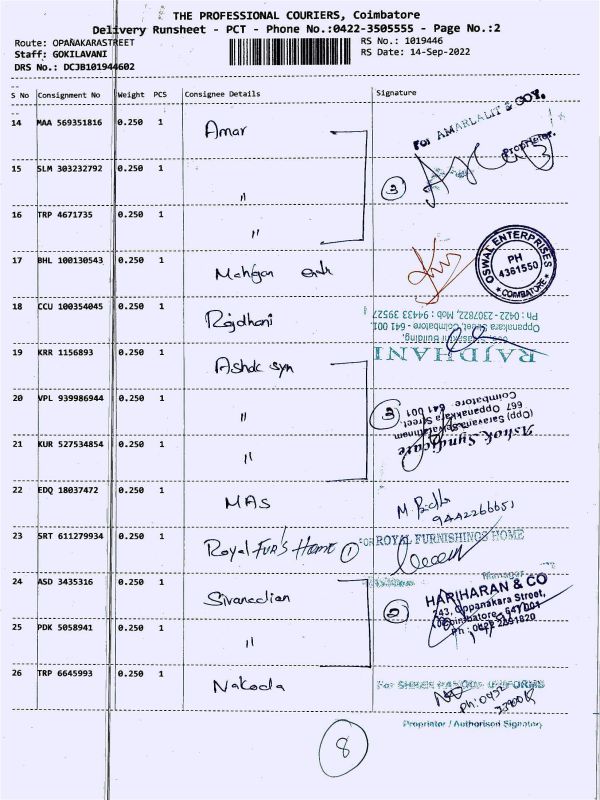 THE PROFESSIONAL COURIERS, Coimbatore
Delivery Runsheet - PCT - Phone No.:0422-3505555 - Page No.:2
Route: OPANAKARASTREET
RS No.: 1019446
Staff: GOKILAVANI
RS Date: 14-Sep-2022
DRS No.: DCJB101944602
S No Consignment No Weight PCS Consignee Details Signature
14 MAA 569351816 0.250 1 Amar
For AMARLALIT & GOY.
Proprietor.
15 SLM 303232792 0.250 1 "
3
16 TRP 4671735 0.250 1 "
17 BHL 100130543 0.250 1
OSWAL ENTERPRISES
PH
4361550
COIMBATORE
18 CCU 100354045 0.250 1 Rajdhani
RAJDHANI
Oppanakara Street, Coimbatore - 641 001
Ph : 0422 - 2307822, Mob : 94433 39527
19 KRR 1156893 0.250 1 Ashok syn
20 VPL 939986944 0.250 1 "
3
Ashok Syndicate
667 Oppanakkara Street
Coimbatore 641 001
21 KUR 527534854 0.250 1 "
22 EDQ 18037472 0.250 1 MAS
9442266651
23 SRT 611279934 0.250 1 Royal Fur's Home 1
FOR ROYAL FURNISHINGS HOME
Manager
24 ASD 3435316 0.250 1
2
HARIHARAN & CO
243, Oppanakara Street,
Coimbatore - 641 001
Ph : 0422 2391820
25 PDK 5058941 0.250 1 "
26 TRP 6645993 0.250 1 Nakoda
Proprietor / Authorised Signatory
8